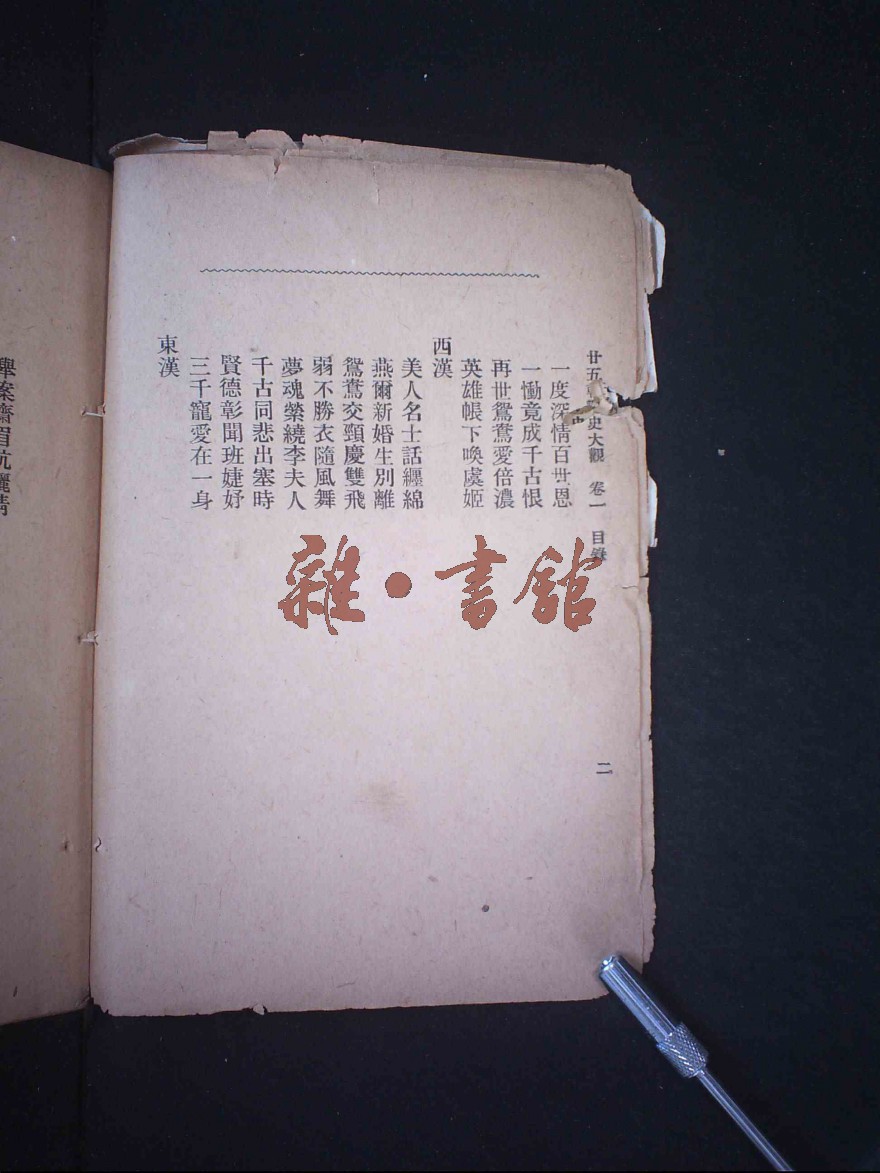 廿五 史大觀 卷一 目錄
一度深情百世恩
一慟竟成千古恨
再世鴛鴦愛倍濃
英雄帳下喚虞姬
西漢
美人名士話纏綿
燕爾新婚生別離
鴛鴦交頸慶雙飛
弱不勝衣隨風舞
夢魂縈繞李夫人
千古同悲出塞時
賢德彰聞班婕妤
三千寵愛在一身
東漢
二
舉案齊眉伉儷情
雜·書館